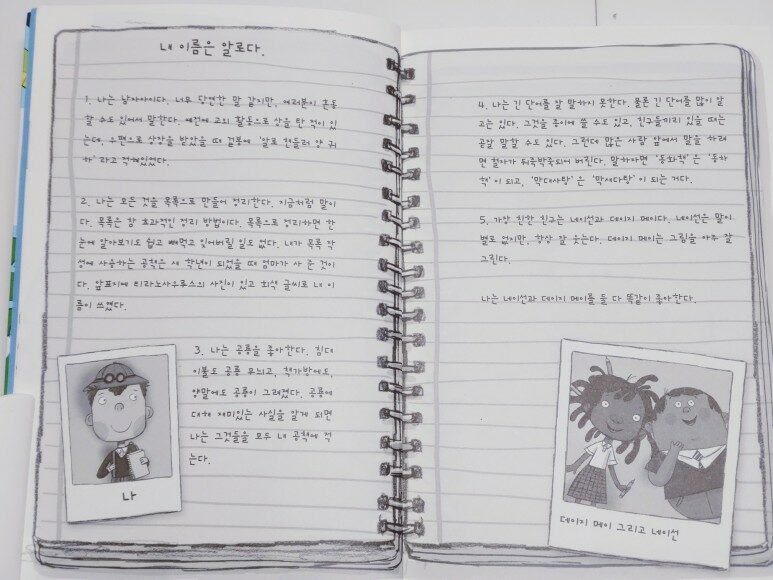 내 이름은 알로다.
1. 나는 남자아이다. 너무 당연한 말 같지만, 여러분이 혼동
할 수도 있어서 말한다. 예전에 교외 활동으로 상을 탄 적이 있
는데, 우편으로 상장을 받았을 때 겉봉에 '알로 첸들러 양 귀
하' 라고 적혀있었다.
2. 나는 모든 것을 목록으로 만들어 정리한다. 지금처럼 말이
다. 목록은 참 효과적인 정리 방법이다. 목록으로 정리하면 한
눈에 알아보기도 쉽고 빼먹고 잊어버릴 일도 없다. 내가 목록 작
성에 사용하는 공책은 새 학년이 되었을 때 엄마가 사 준 것이
다. 앞표지에 티라노사우루스의 사진이 있고 회색 글씨로 내 이
름이 쓰였다.
3. 나는 공룡을 좋아한다. 침대
이불도 공룡 무늬고, 책가방에도,
양말에도 공룡이 그려졌다. 공룡에
대해 재미있는 사실을 알게 되면
나는 그것들을 모두 내 공책에 적
는다.
나
4. 나는 긴 단어를 잘 말하지 못한다. 물론 긴 단어를 많이 알
고는 있다. 그것을 종이에 쓸 수도 있고, 친구들끼리 있을 때는
곧잘 말할 수도 있다. 그런데 많은 사람 앞에서 말을 하려
면 혀가 뒤죽박죽되어 버린다. 말하자면 '동화책' 은 '동차
책' 이 되고, '막대사탕' 은 '막새다탕' 이 되는 거다.
5. 가장 친한 친구는 네이선과 데이지 메이다. 네이선은 말이
별로 없지만, 항상 잘 웃는다. 데이지 메이는 그림을 아주 잘
그린다.
나는 네이선과 데이지 메이를 둘 다 똑같이 좋아한다.
데이지 메이 그리고 네이선